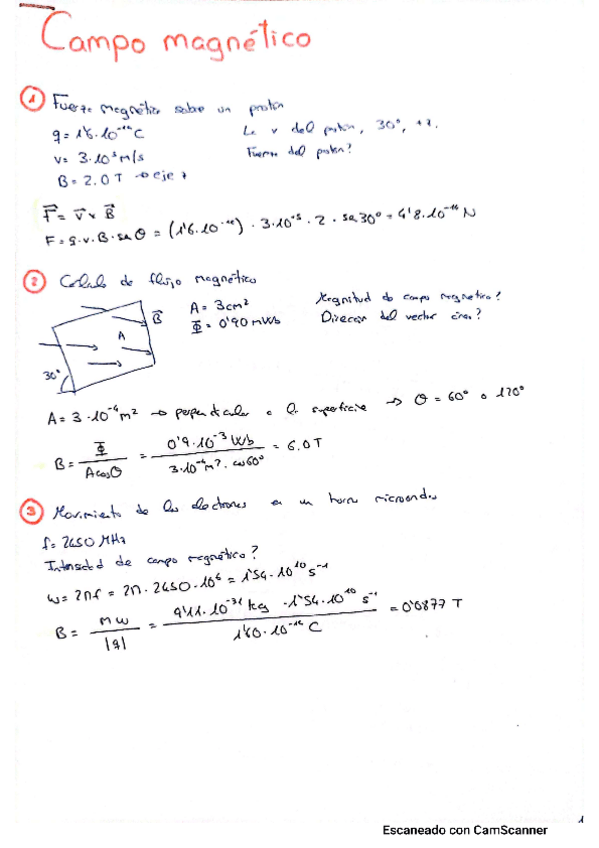 Campo magnético
1 Fuerza magnética sobre un protón
q = 1'6·10⁻¹⁹ C La v del protón, 30°, +z.
v = 3·10⁵ m/s Fuerza del protón?
B = 2.0 T → eje z
F⃗ = v⃗ x B⃗
F = q·v·B·sen θ = (1'6·10⁻¹⁹)·3·10⁻⁵·2·sen 30° = 4'8·10⁻¹⁴ N
2 Cálculo de flujo magnético
A = 3cm² Magnitud do campo magnetico?
B⃗ Φ = 0'90 mWb Direccion del vector área?
A
30°
A = 3·10⁻⁴m² → perpendicular a la superficie → θ = 60° o 120°
B = Φ / A cos θ = 0'9·10⁻³ Wb / 3·10⁻⁴m²·cos 60° = 6.0 T
3 Movimiento de los electrones en un horno microondas
f = 2450 MHz
Intensidad de campo magnético?
ω = 2πf = 2π·2450·10⁶ = 1'54·10¹⁰ s⁻¹
B = mω / |q| = 9'11·10⁻³¹ kg · 1'54·10¹⁰ s⁻¹ / 1'60·10⁻¹⁹ C = 0'0877 T
1
Escaneado con CamScanner